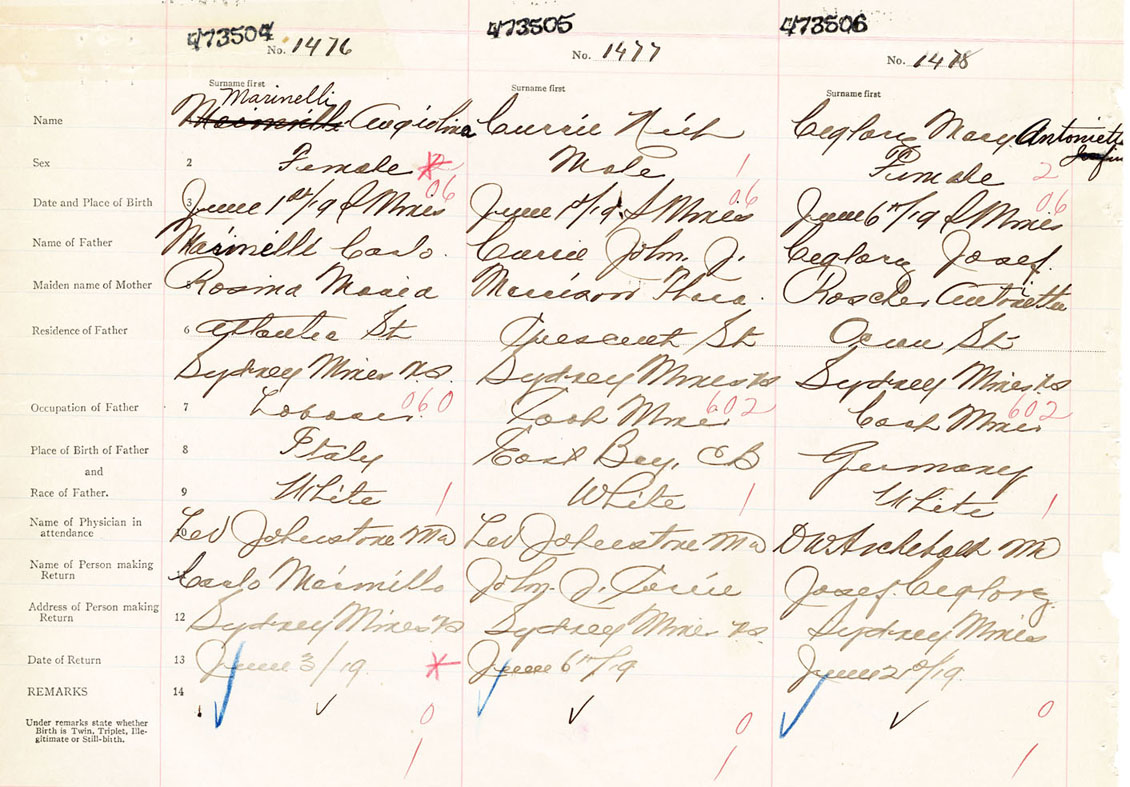 473504 473505 473506
No. 1476 No. 1477 No. 1478
Surname first Surname first Surname first
Marinelli
Name Angiolina Currie Ceglarz Mary Antoinette
Sex 2 Female 2 Male 1 Female 2
06 06 06
Date and Place of Birth 3 June 1st/19 S Mines June 1st/19 S Mines June 6th/19 S Mines
Name of Father Marinelli Carlo. Currie John. J. Ceglarz Josef.
Maiden name of Mother 5 Rosina Maria Morrison Flora. Roscher Antoinette
Residence of Father 6 Atlantic St Crescent St Ocean St
Sydney Mines N.S. Sydney Mines NS Sydney Mines NS
Occupation of Father 7 Laborer 060 Coal Miner 602 Coal Miner 602
Place of Birth of Father 8 Italy East Bay, CB Germany
and
Race of Father. 9 White 1 White 1 White 1
Name of Physician in
attendance 10 Johnstone MD Johnstone MD DW Archibald MD
Name of Person making
Return Carlo John. J. Currie Josef. Ceglarz.
Address of Person making
Return 12 Sydney Mines NS Sydney Mines NS. Sydney Mines
Date of Return 13 June 3/19. June 6th/19 June 21st/19.
REMARKS 14
Under remarks state whether
Birth is Twin, Triplet, Ille-
gitimate or Still-birth.
0 0 0
1 1 1